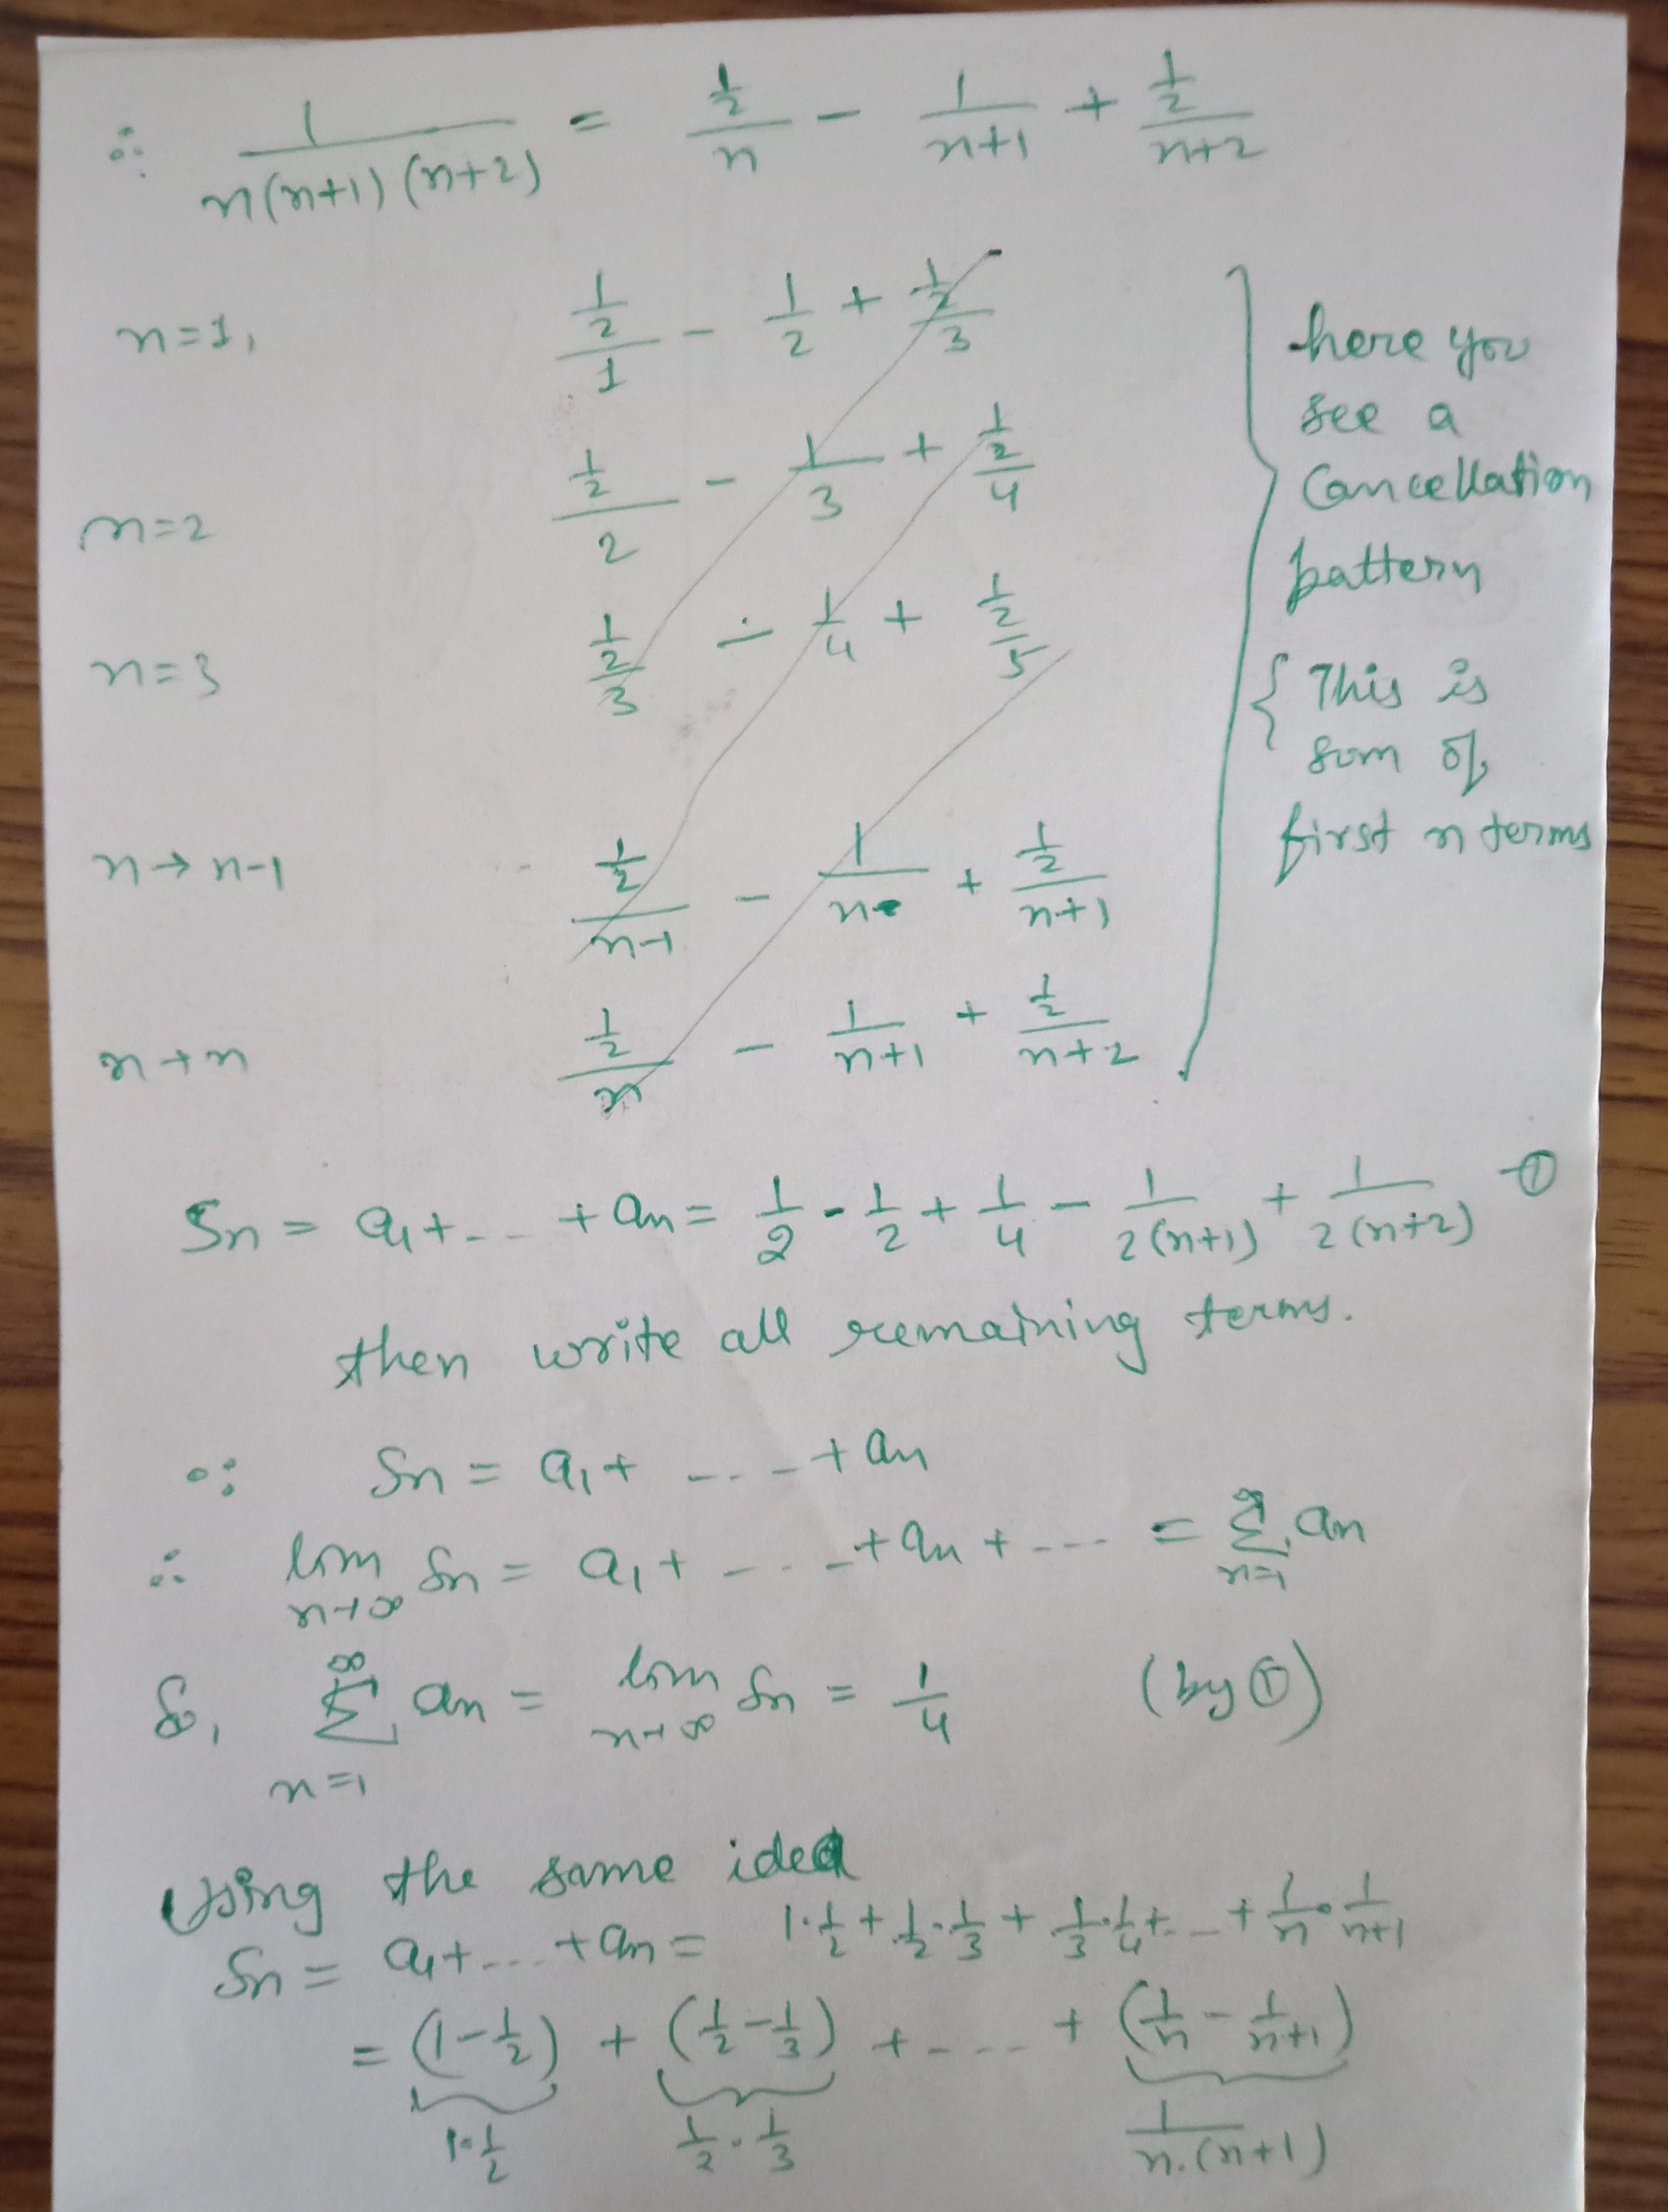 ∴ 1/(n(n+1)(n+2)) = (1/2)/n - 1/(n+1) + (1/2)/(n+2)
n=1, (1/2)/1 - 1/2 + (1/2)/3
n=2 (1/2)/2 - 1/3 + (1/2)/4
n=3 (1/2)/3 - 1/4 + (1/2)/5
n→n-1 (1/2)/(n-1) - 1/n + (1/2)/(n+1)
n→n (1/2)/n - 1/(n+1) + (1/2)/(n+2)
} here you
see a
Cancellation
pattern
{ This is
sum of
first n terms
Sn = a1+...+an = 1/2 - 1/2 + 1/4 - 1/(2(n+1)) + 1/(2(n+2)) ①
then write all remaining terms.
∵ Sn = a1 + .... + an
∴ lim n→∞ Sn = a1 + ....+ an + .... = ∞ Σ n=1 an
So, ∞ Σ n=1 an = lim n→∞ Sn = 1/4 (by ①)
Using the same idea
Sn = a1+....+an = 1·1/2 + 1/2·1/3 + 1/3·1/4 + ... + 1/n·1/(n+1)
= (1-1/2) + (1/2-1/3) + .... + (1/n - 1/(n+1))
1·1/2 1/2·1/3 1/(n.(n+1))